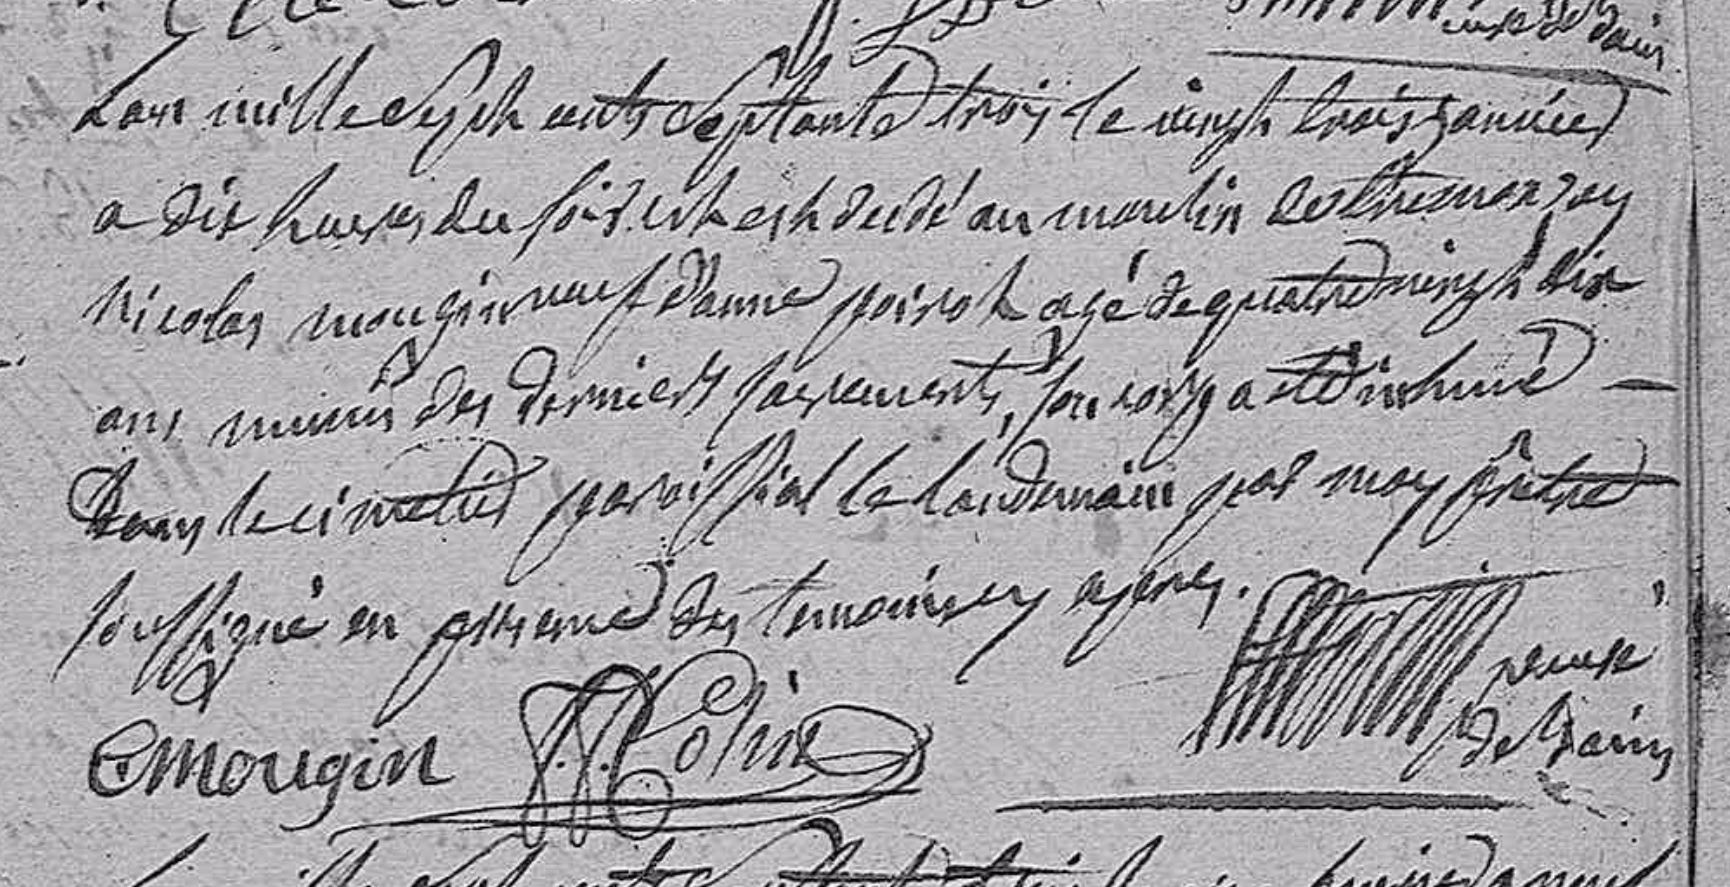 Lan mille sept cents septante trois le vingt trois janvier
a dix heures du soir est decedé au moulin de tremonzey
Nicolas mougin veuf d'anne poirot agé de quatre vingt dix
ans muni des derniers sacrements, son corp a eté inhumé
dans le cimetier paroissial le landemain par moy prêtre
soussigné en presence des temoins cy apres.
C mougin J. F. Colin
curé
de bains